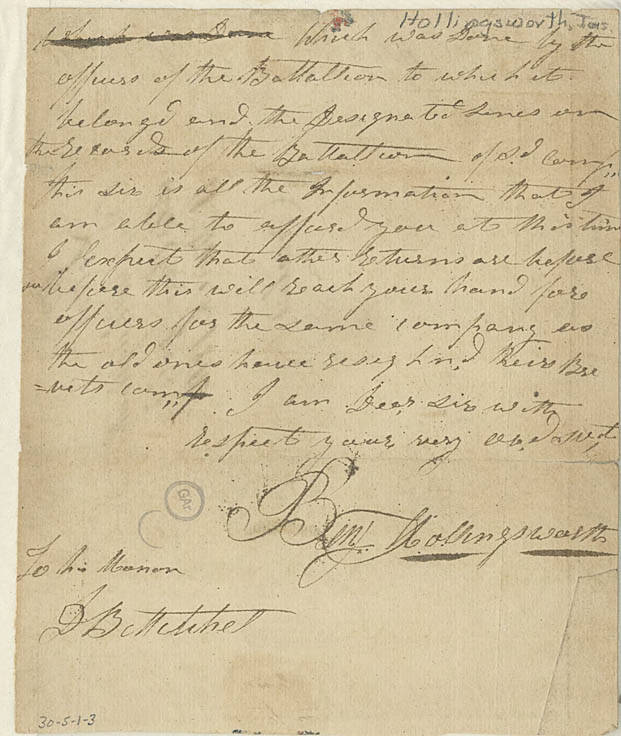 Hollingsworth, Jas
which was Done Which was Done by the
officers of the Battallion to which it
belongd and the Designated Lines on
the Records of the Battallion of sd. comp,,
this sir is all the Information that I
am able to afford you at this time
I Expect that other returns are before
before this will reach your hand for
officers for the same company as
the old ones have resighnd Keirs Bre
=vets comp,, I am Dear sir with
respect your very obd. svt,
Bnj. Hollingsworth
To his Honor
D B Mitchel
GA
30-5-1-3